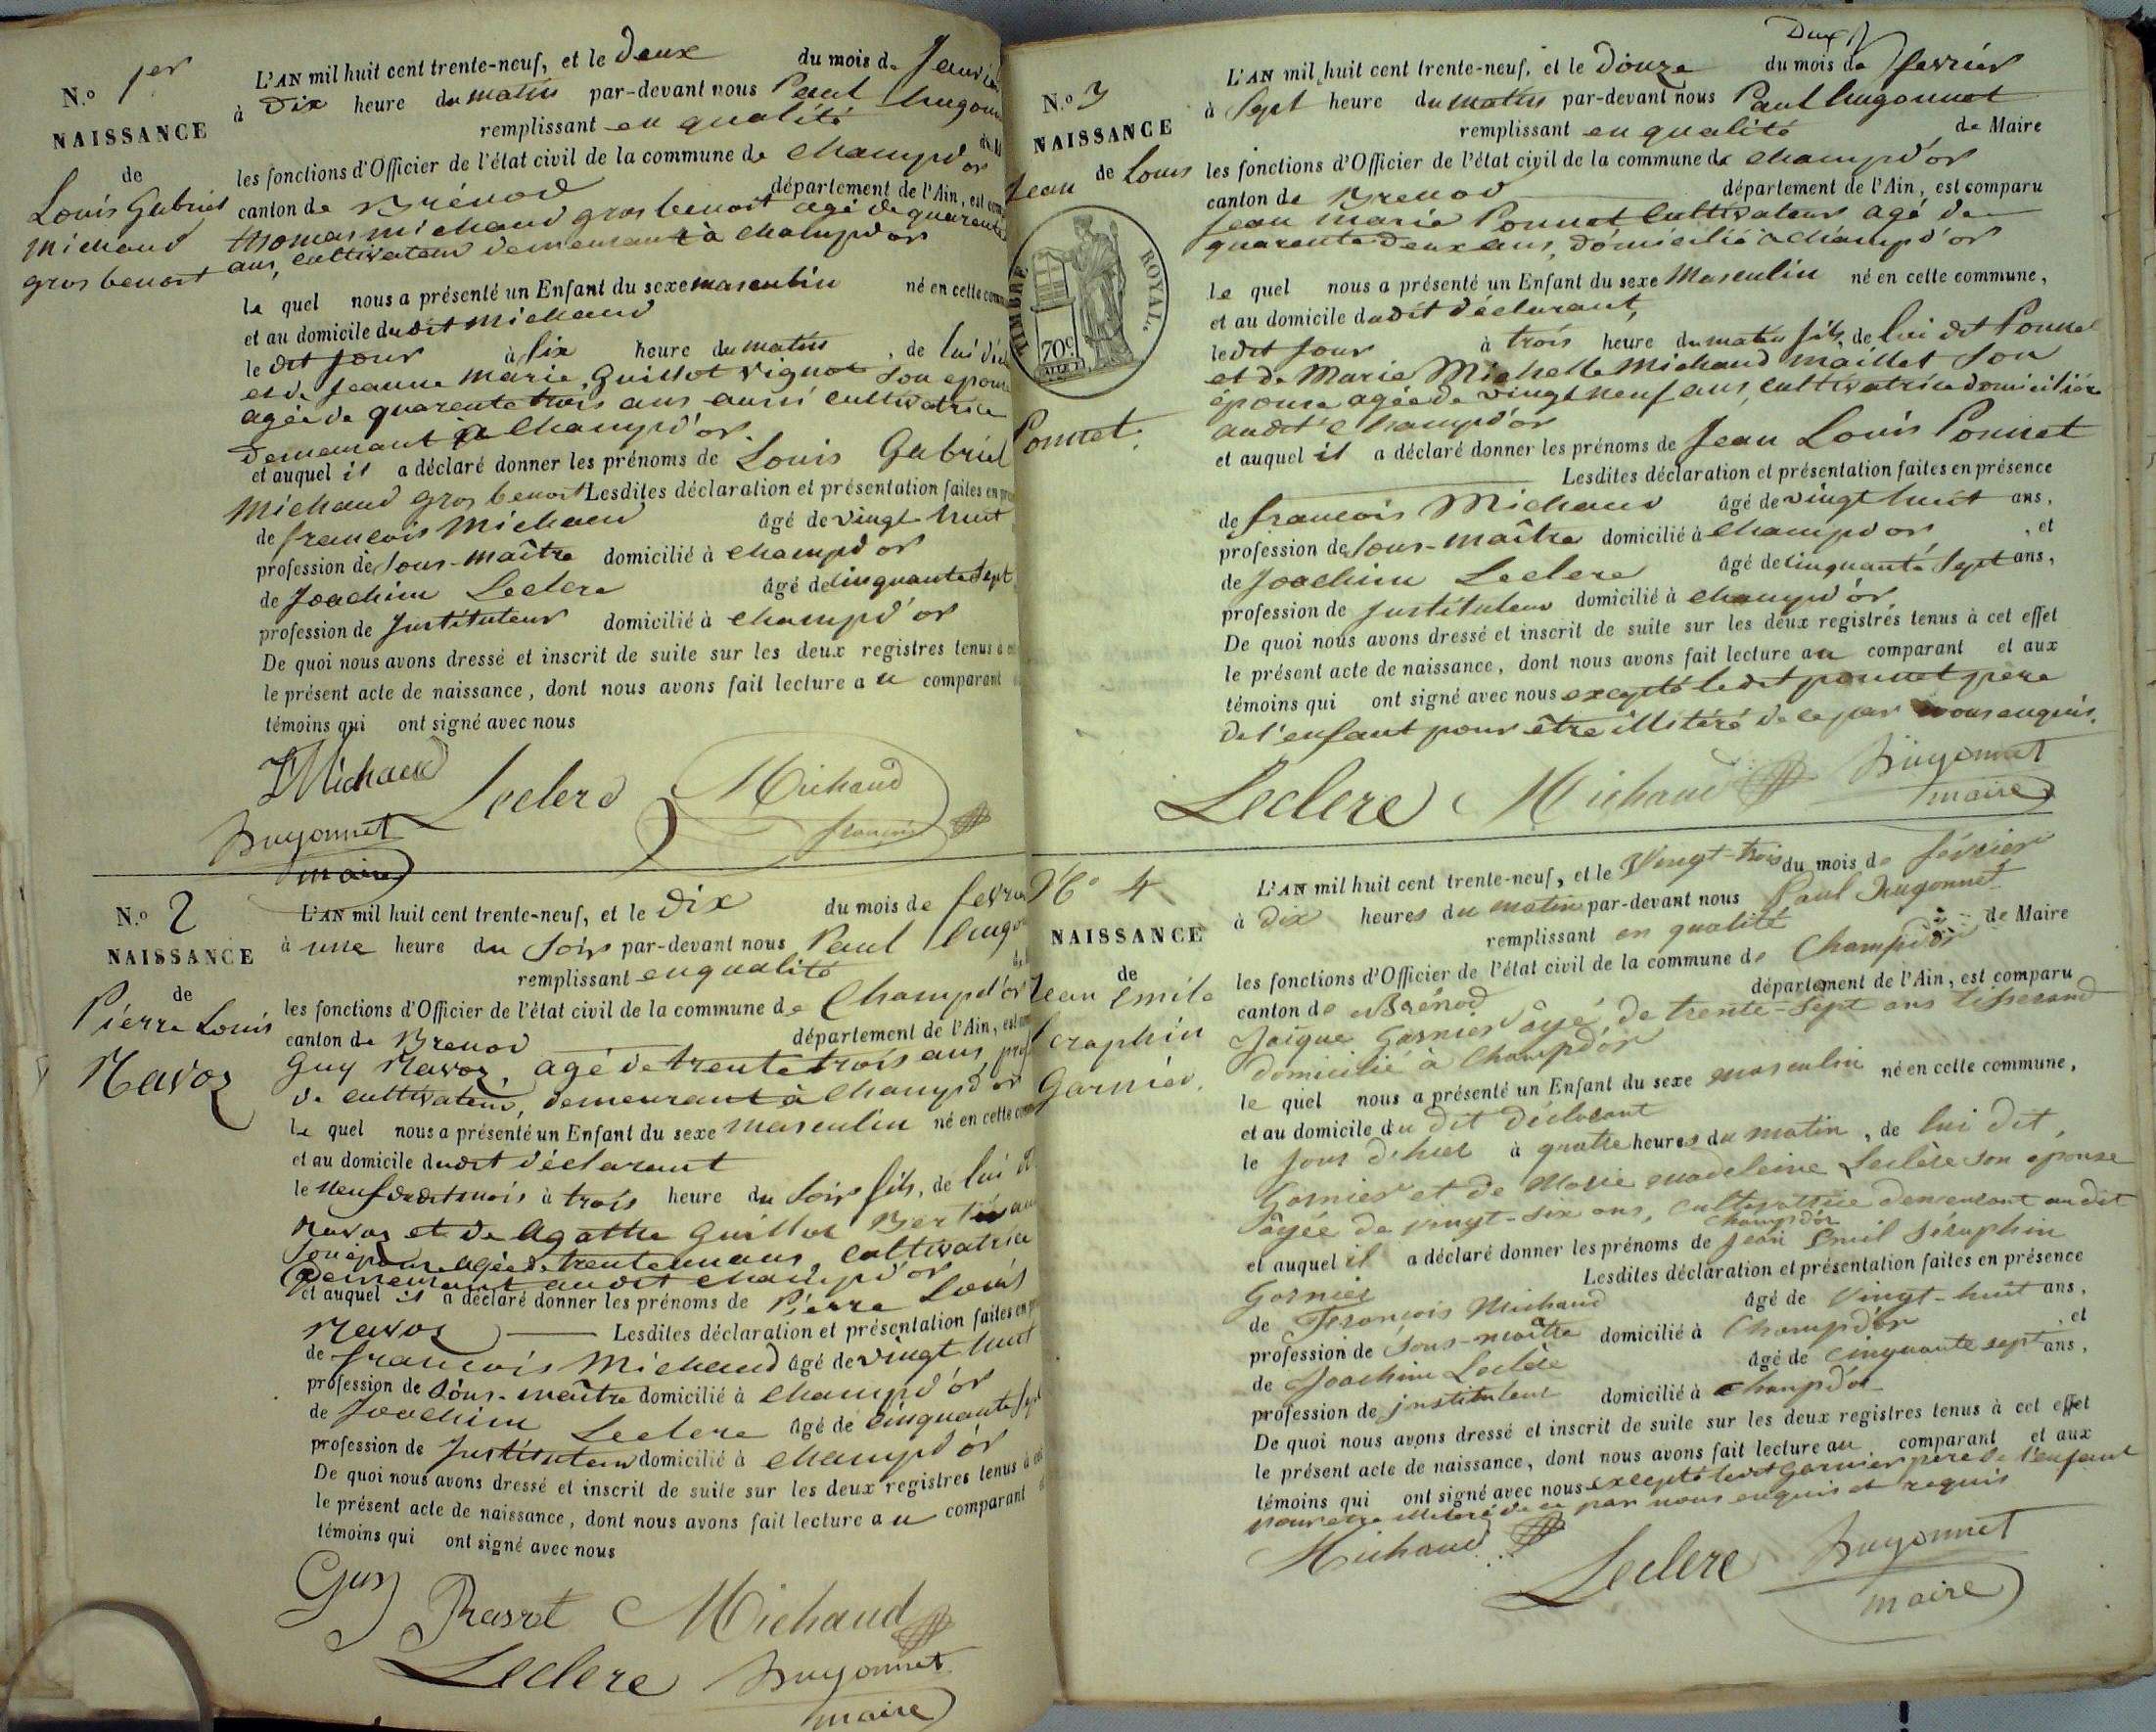 N.o 1er
NAISSANCE
de
Louis Gabriel
Michaud
gros benoit
L'AN mil huit cent trente-neuf, et le Deux du mois de Janvier
à Dix heure du matin par-devant nous Paul hugonnet
remplissant en qualité
les fonctions d'Officier de l'état civil de la commune de Champd'or
canton de Brénod département de l'Ain, est
thomas michaud gros benoit agé de quarente
ans, cultivateur demeurant à Champd'or
le quel nous a présenté un Enfant du sexe masculin né en cette
et au domicile dudit Michaud
le dit jour à six heure du matin, de lui
et de Jeanne Marie Guillot Vignot son epouse
agée de quarente trois ans aussi cultivatrice
demeurant à Champd'or.
et auquel il a déclaré donner les prénoms de Louis Gabriel
Michaud gros benoit Lesdites déclaration et présentation faites en
de francois Michaud âgé de vingt huit
profession de Sous-maître domicilié à Champd'or
de Joachim Leclerc âgé de cinquante sept
profession de Instituteur domicilié à Champd'or
De quoi nous avons dressé et inscrit de suite sur les deux registres tenus à
le présent acte de naissance, dont nous avons fait lecture au comparant
témoins qui ont signé avec nous
Michaud Leclerc Michaud
françois
hugonnet
maire
N.o 2
NAISSANCE
de
Pierre Louis
Ravoz
L'AN mil huit cent trente-neuf, et le Dix du mois de fevrier
à une heure du Soir par-devant nous Paul
remplissant en qualité
les fonctions d'Officier de l'état civil de la commune de Champd'or
canton de Brenod département de l'Ain,
Guy Ravoz, agé de trente trois ans,
de cultivateur, demeurant à Champd'or
le quel nous a présenté un Enfant du sexe masculin né en cette
et au domicile dudit déclarant
le neuf dudit mois à trois heure du Soir fils, de lui
Ravoz et de Agathe Guillot
Son epouse agée de trente un ans, cultivatrice
Demeurant audit Champd'or
et auquel il a déclaré donner les prénoms de Pierre Louis
Ravoz Lesdites déclaration et présentation faites en
de francois Michaud âgé de vingt huit
profession de Sous-maître domicilié à Champd'or
de Joachim Leclerc âgé de Cinquante
profession de Instituteur domicilié à Champd'or
De quoi nous avons dressé et inscrit de suite sur les deux registres tenus à
le présent acte de naissance, dont nous avons fait lecture au comparant
témoins qui ont signé avec nous
Guy Ravot Michaud
Leclerc hugonnet
maire
N.o 3
NAISSANCE
de Louis
Jean
TIMBRE ROYAL.
70c
Ponnet
L'AN mil huit cent trente-neuf, et le Douze du mois de fevrier
à Sept heure du matin par-devant nous Paul hugonnet
remplissant en qualité de Maire
les fonctions d'Officier de l'état civil de la commune de Champd'or
canton de Brenod département de l'Ain, est comparu
Jean Marie Ponnet Cultivateur agé de
quarente deux ans, domicilié à Champd'or
le quel nous a présenté un Enfant du sexe Masculin né en cette commune,
et au domicile dudit déclarant,
le dit jour à trois heure du matin fils, de lui dit Ponnet
et de Marie Michelle Michaud maillet Son
épouse agée de vingt neuf ans, cultivatrice domiciliée
audit Champd'or
et auquel il a déclaré donner les prénoms de Jean Louis Ponnet
Lesdites déclaration et présentation faites en présence
de francois Michaud âgé de vingt huit ans,
profession de Sous-maître domicilié à Champd'or, et
de Joachim Leclerc âgé de cinquante Sept ans,
profession de Instituteur domicilié à Champd'or
De quoi nous avons dressé et inscrit de suite sur les deux registres tenus à cet effet
le présent acte de naissance, dont nous avons fait lecture au comparant et aux
témoins qui ont signé avec nous excepté ledit ponnet père
de l'enfant pour être illitéré de ce par nous enquis.
Leclerc Michaud hugonnet
maire
No 4
NAISSANCE
de
Jean Emile
Seraphin
Garnier.
L'AN mil huit cent trente-neuf, et le Vingt-trois du mois de février
à Dix heures du matin par-devant nous Paul hugonnet
remplissant en qualité de Maire
les fonctions d'Officier de l'état civil de la commune de Champd'or
canton de Brénod département de l'Ain, est comparu
Jaique Garnier âgé de trente-sept ans tisserand
domicilié à Champd'or
le quel nous a présenté un Enfant du sexe masculin né en cette commune,
et au domicile du dit déclarant
le jour d'hier à quatre heures du matin, de lui dit,
Garnier et de Marie madeleine Leclère son epouse
âgée de vingt-six ans, cultivatrice demeurant au dit
Champd'or
et auquel il a déclaré donner les prénoms de Jean Emil Séraphin
Garnier Lesdites déclaration et présentation faites en présence
de François Michaud âgé de Vingt-huit ans,
profession de Sous-maître domicilié à Champd'or, et
de Joachim Leclère âgé de cinquante sept ans,
profession de instituteur domicilié à Champd'or
De quoi nous avons dressé et inscrit de suite sur les deux registres tenus à cet effet
le présent acte de naissance, dont nous avons fait lecture au comparant et aux
témoins qui ont signé avec nous excepté ledit Garnier père de l'enfant
pour etre illiteré de ce par nous enquis et requis
Michaud Leclerc hugonnet
maire